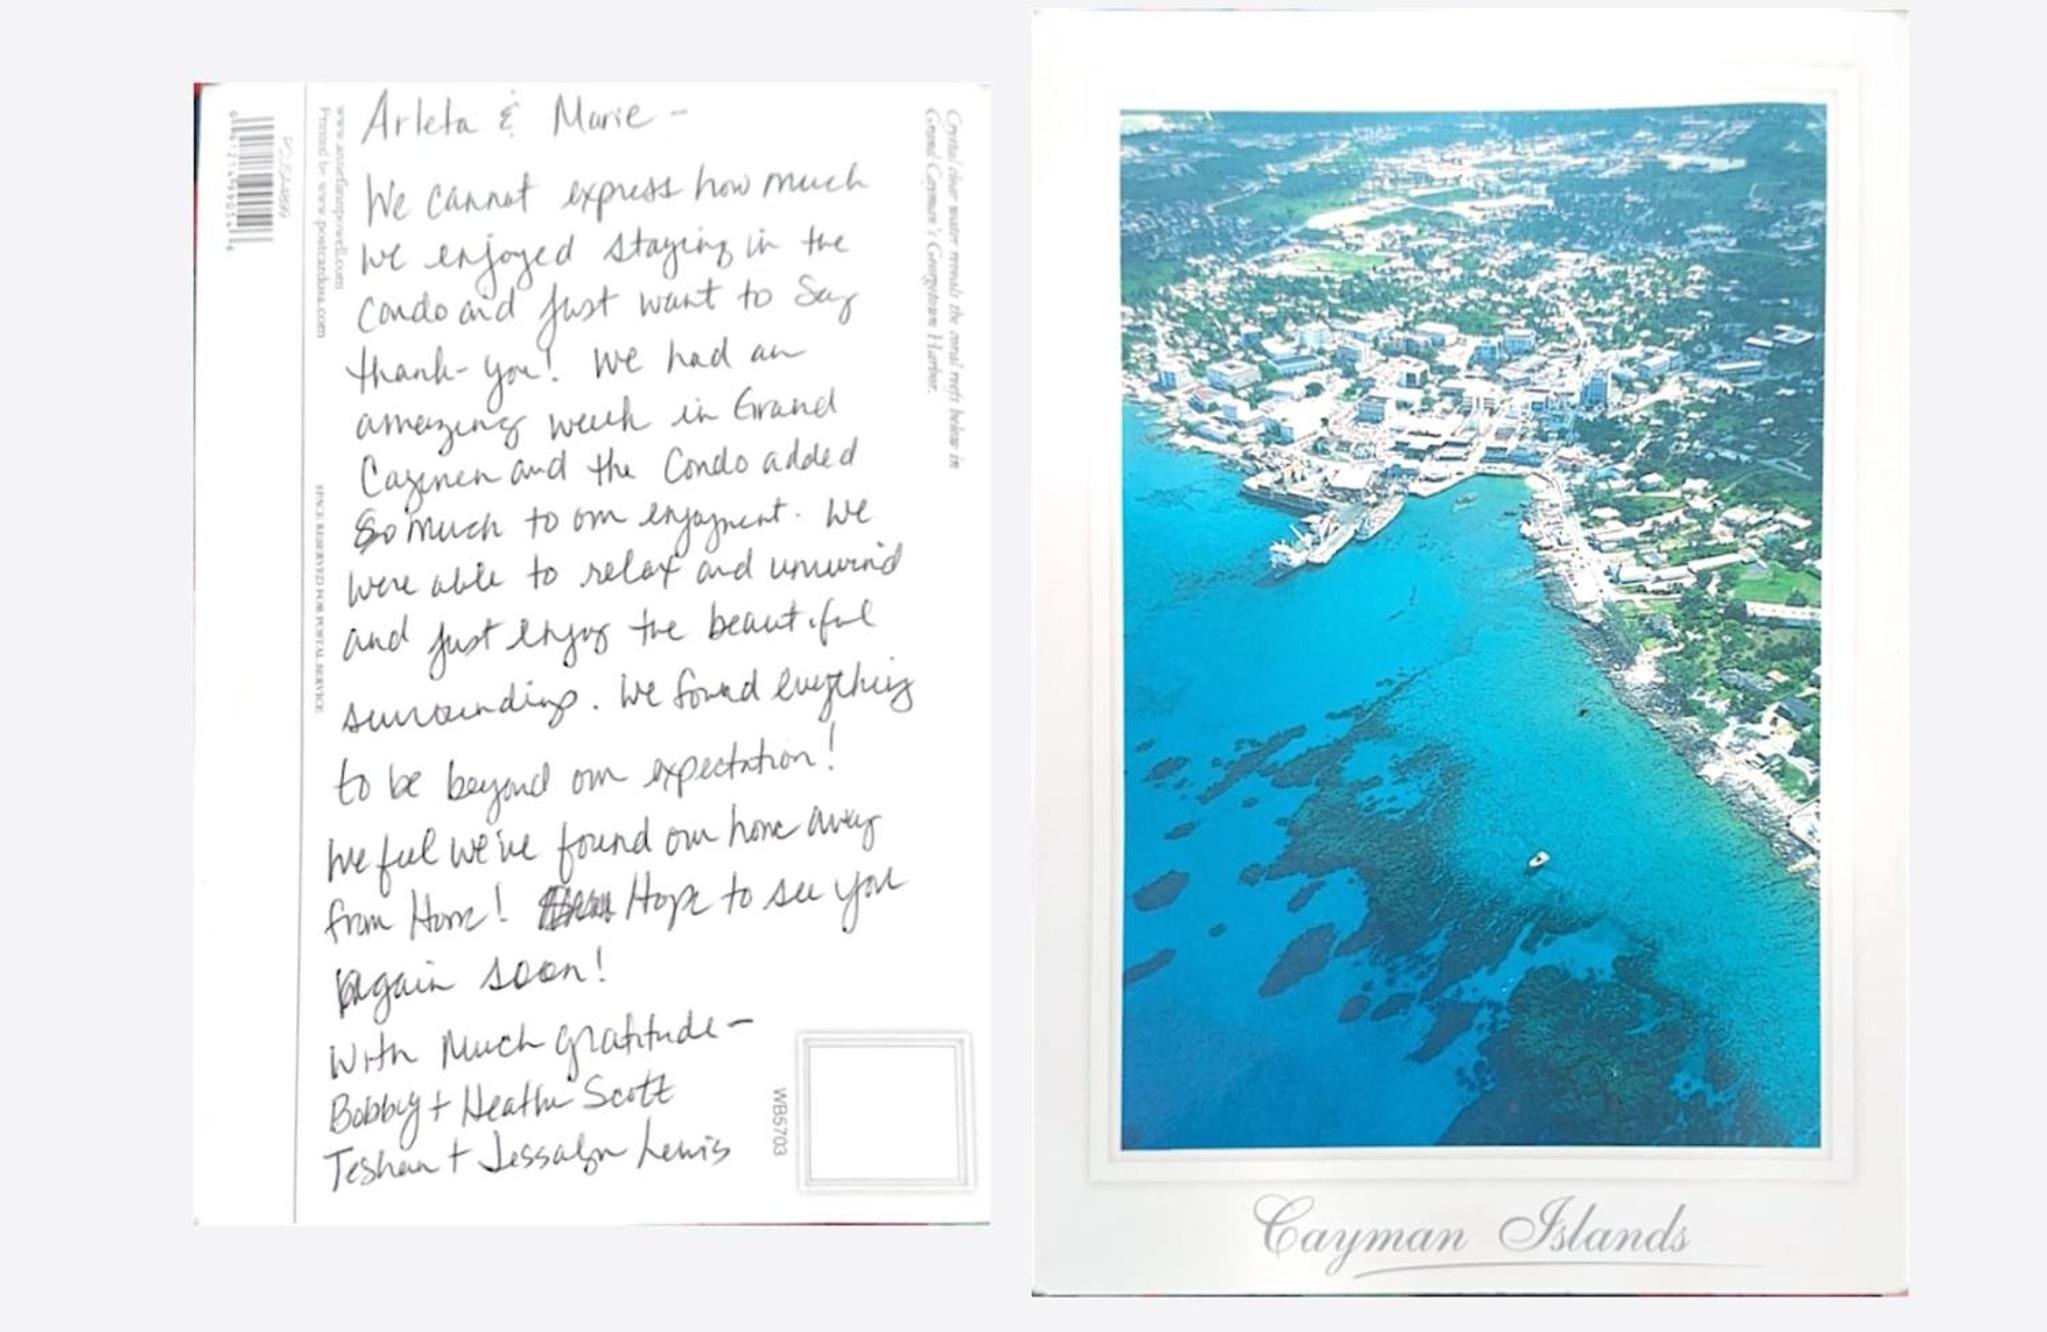 Arleta & Marie -
We cannot express how much
we enjoyed staying in the
Condo and just want to say
thank-you! We had an
amazing week in Grand
Caymen and the Condo added
so much to our enjoyment. We
were able to relax and unwind
and just enjoy the beautiful
surroundings. We found everything
to be beyond our expectation!
We feel we've found our home away
from Home! Hope to see you
again soon!
With Much gratitude -
Bobby + Heather Scott
Teshan + Jessalyn Lewis
Crystal clear water reveals the coral reefs below in
Grand Cayman's Georgetown Harbor.
www.annefarrpowell.com
Printed by www.postcardusa.com
SPACE RESERVED FOR POSTAL SERVICE
WB5703
Cayman Islands